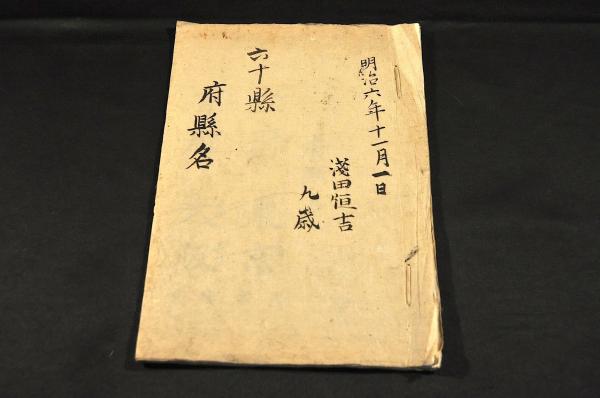 明治六年十一月一日
淺田恒吉
九歳
六十縣
府縣名